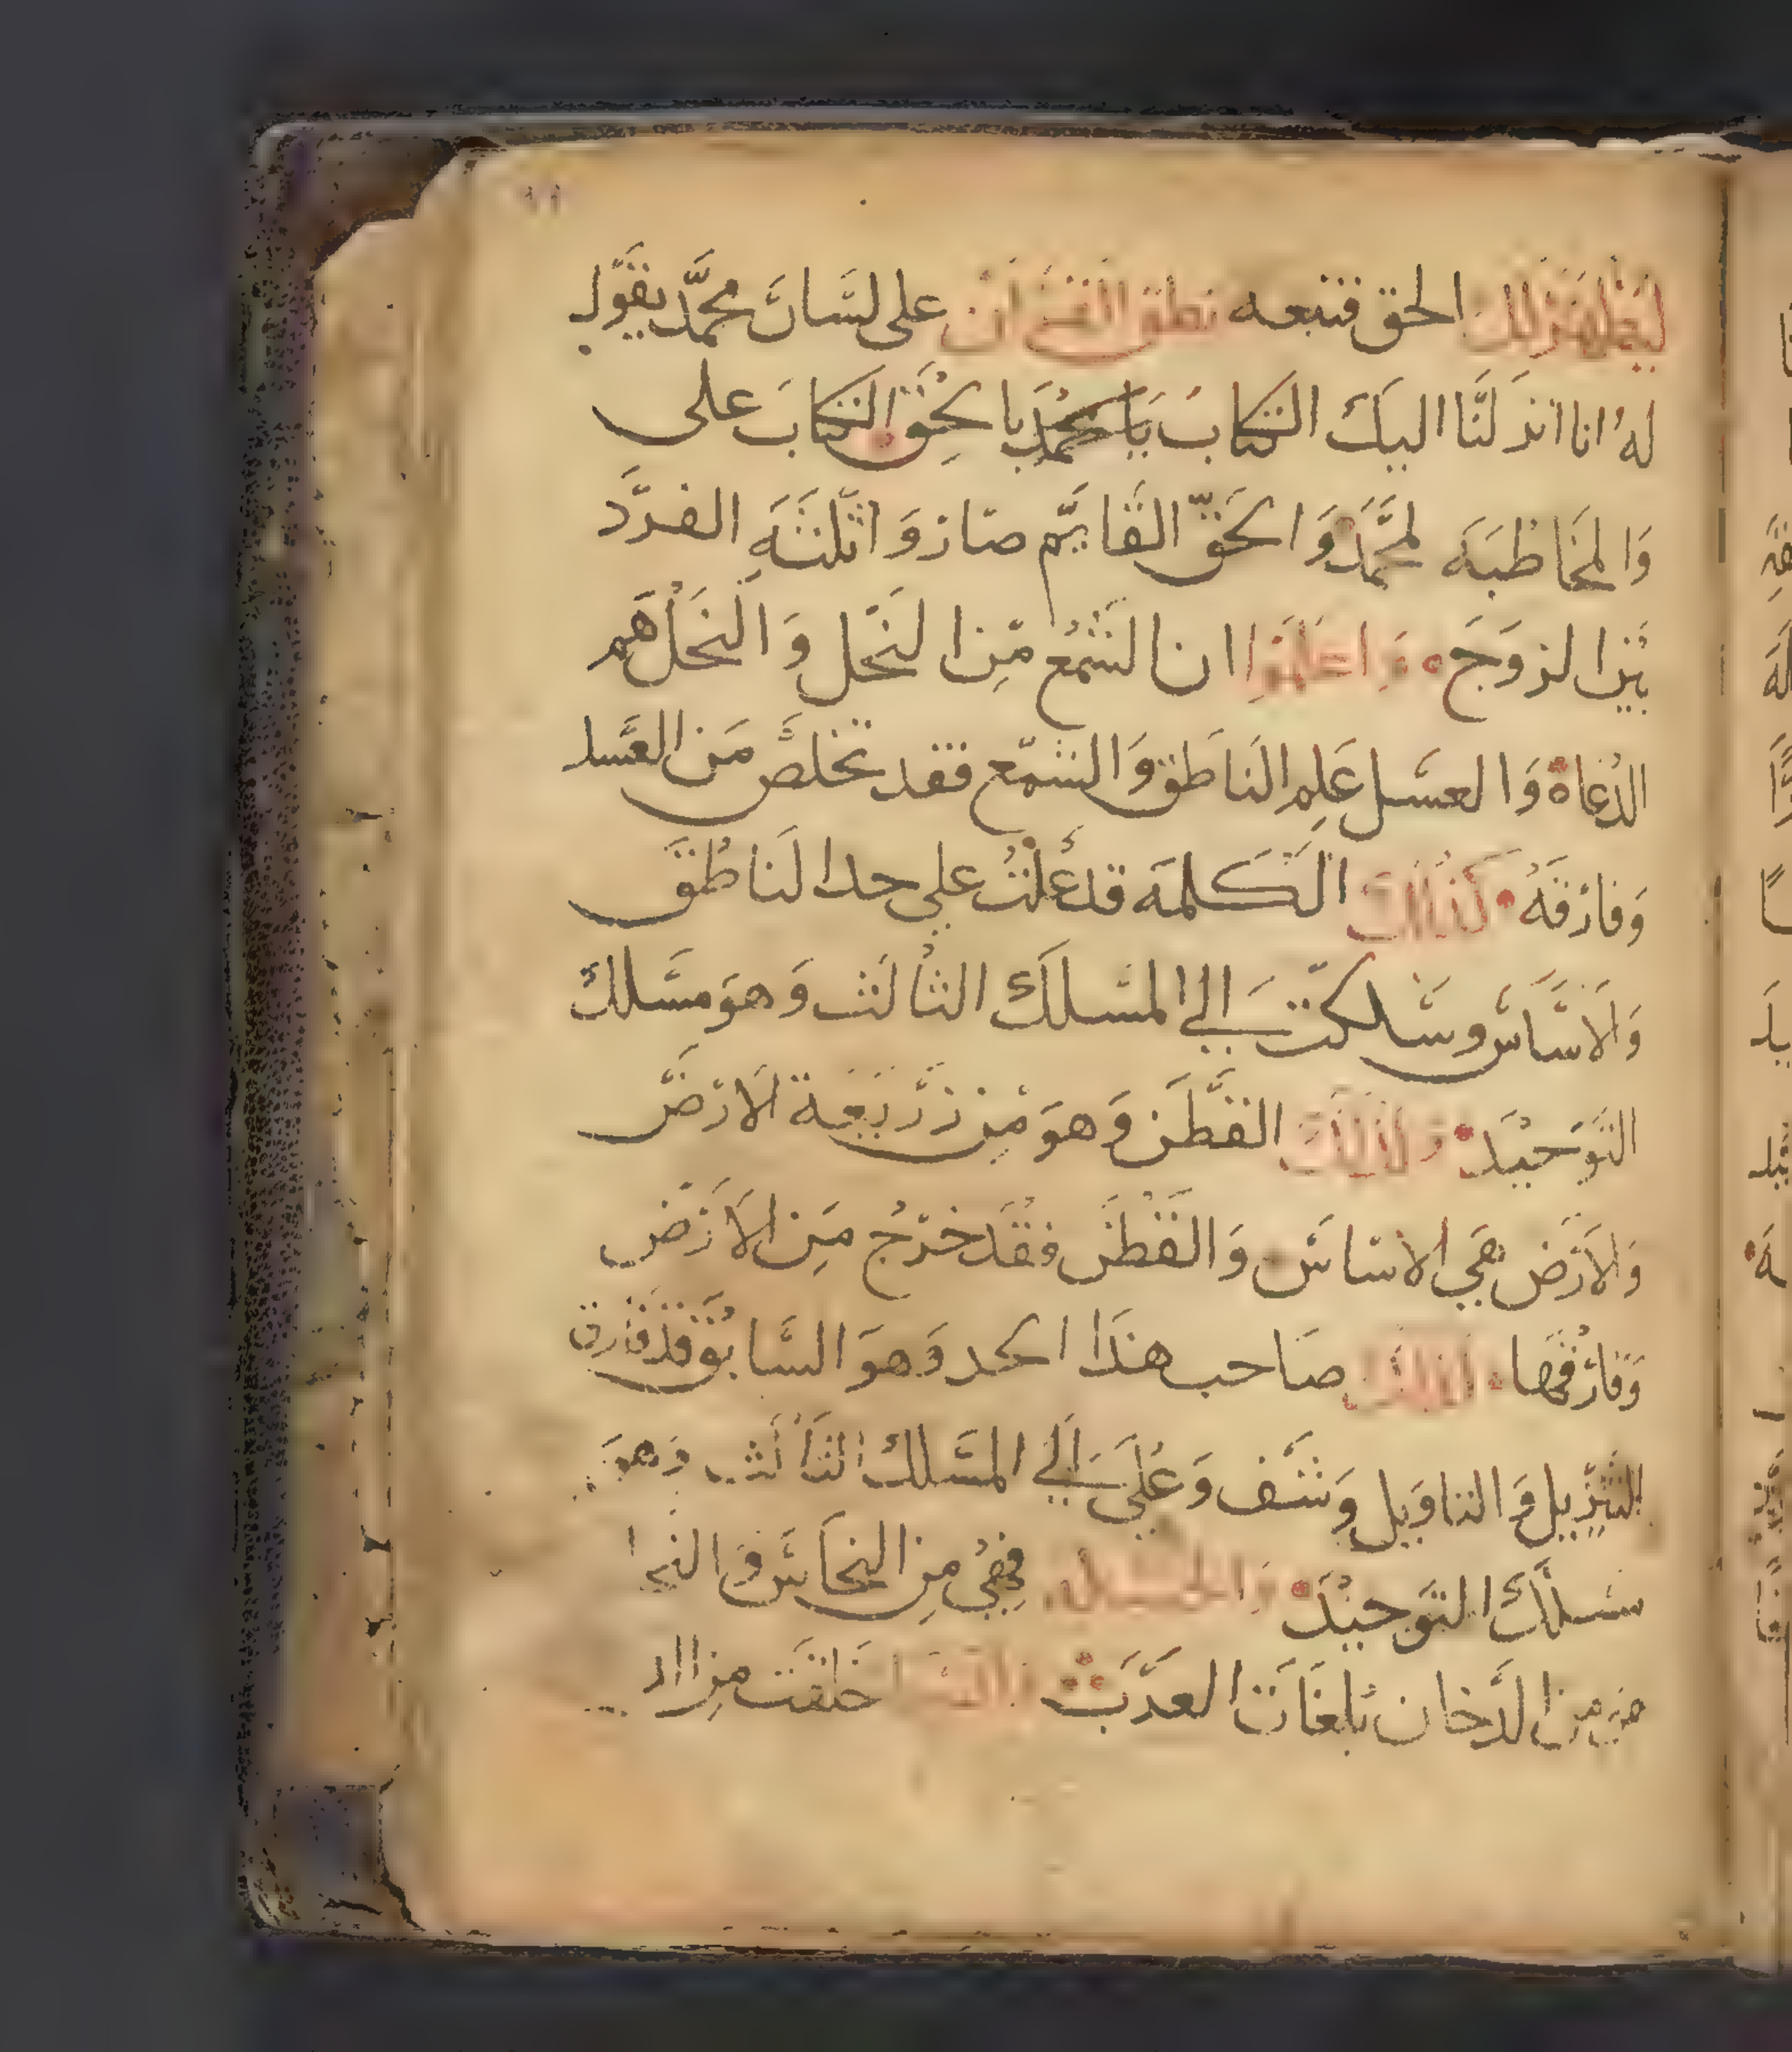 الحق فنتبعه نطق القران على لسان محمد يقول
له انا انزلنا اليك الكتاب يا محمد بالحق الكتاب على
والمخاطبه لمحمد والحق القايم صار والثلثه الفرد
بين الزوج واعلموا ان الشمع من النحل والنحل هم
الدعاة والعسل علم الناطق والشمع فقد تخلص من العسل
وفارقه كذلك الكلمه قد علت على حد الناطق
والاساس وسلكت الي المسلك الثالث وهو مسلك
التوحيد وكذلك القطن وهو من زريعة الارض
والارض هي الاساس والقطن فقد خرج من الارض
وفارقها كذلك صاحب هذا الحد وهو السابق قد فارق
التنزيل والتاويل وشف وعلي الي المسلك الثالث وهو
مسلك التوحيد فهي من النحاس
من الدخان بلغات العدب خلقت من